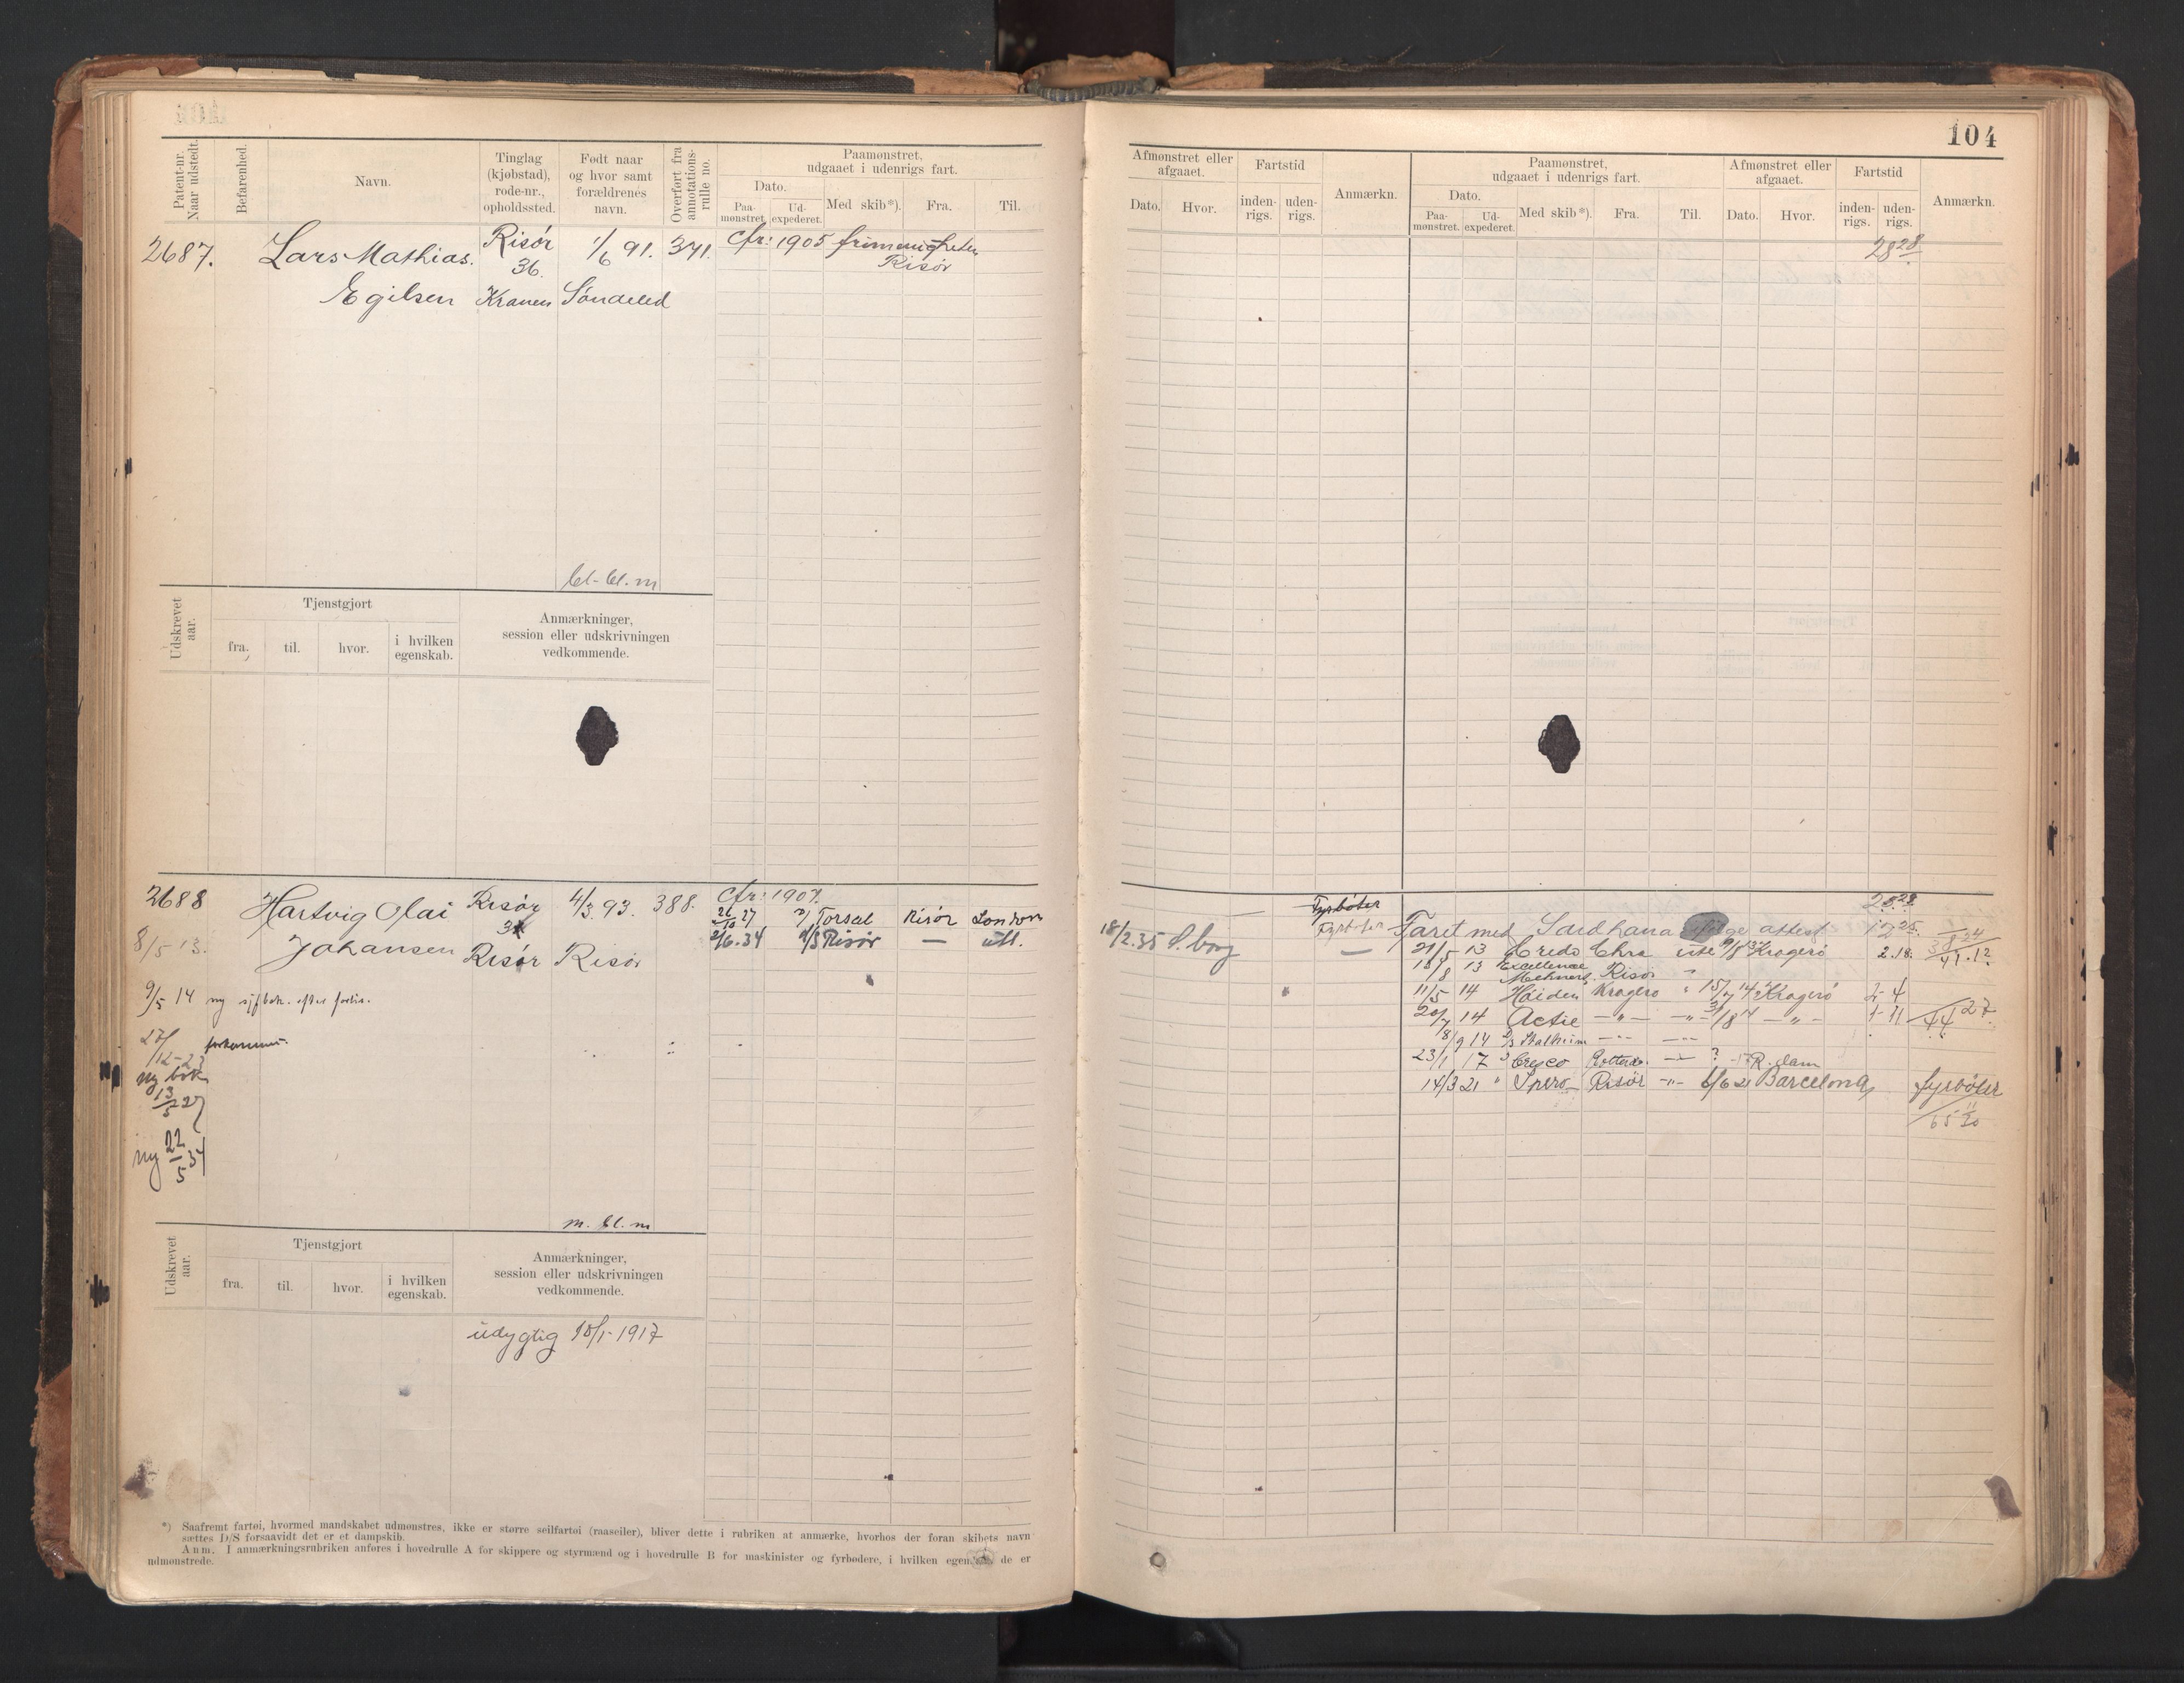 104
Patent-nr. Naar udstedt.
Befarenhed.
Navn.
Tinglag (kjøbstad), rode-nr., opholdssted.
Født naar og hvor samt forældrenes navn.
Overført fra annotations-rulle no.
Paamønstret, udgaaet i udenrigs fart.
Dato.
Paa-mønstret.
Ud-expederet.
Med skib*).
Fra.
Til.
2687.
Lars Mathias.
Risør
1/6 91.
371.
Cfr: 1905
36.
Risør
Egilsen
Kranen
Søndeled
bl-bl. m
Udskrevet aar.
Tjenstgjort
fra.
til.
hvor.
i hvilken egenskab.
Anmærkninger, session eller udskrivningen vedkommende.
2688
Hartvig Olai
Risør
4/3 93.
388.
Cfr: 1907.
26/10 27
Torsal
Risør
London
8/5 13.
Johansen
Risør
Risør
2/6. 34
D/S Risør
—
utl.
9/5 14 ny
27/12-23
ny bok
13/5 27
ny 22/5 34
m. bl. m
Udskrevet aar.
Tjenstgjort
fra.
til.
hvor.
i hvilken egenskab.
Anmærkninger, session eller udskrivningen vedkommende.
udygtig 18/1-1917
*) Saafremt fartøi, hvormed mandskabet udmønstres, ikke er større seilfartøi (raaseiler), bliver dette i rubriken at anmærke, hvorhos der foran skibets navn
sættes D/S forsaavidt det er et dampskib.
Anm. I anmærkningsrubriken anføres i hovedrulle A for skippere og styrmænd og i hovedrulle B for maskinister og fyrbødere, i hvilken egenskab de er
udmønstrede.
Afmønstret eller afgaaet.
Fartstid
Anmærkn.
Dato.
Hvor.
inden-rigs.
uden-rigs.
Paamønstret, udgaaet i udenrigs fart.
Dato.
Paa-mønstret.
Ud-expederet.
Med skib*).
Fra.
Til.
Afmønstret eller afgaaet.
Dato.
Hvor.
Fartstid
inden-rigs.
uden-rigs.
Anmærkn.
28 28
— Fyrbøter
28.28
Fyrbøter
Faret med Sardhana ifølge attest 12 25.
8 24
18/2.35 S. borg
—
21/5 13 Credo Chra ute 9/8 13 Kragerø 2.18.
41.12
18/8 13 Excellence Mehnert Risør "
11/5 14 Høiden Kragerø " 15/7 14 Kragerø 2-4
20/7 14 Actie —"— —"— 31/8 14 —"—
44 27
8/9 14 D/S Stalheim —"— —"—
23/1 17 " Cresco Rotterd. —"— ? R. dam
14/3 21 " Spero Risør —"— 6/6 21 Barcelona fyrbøter
65 20